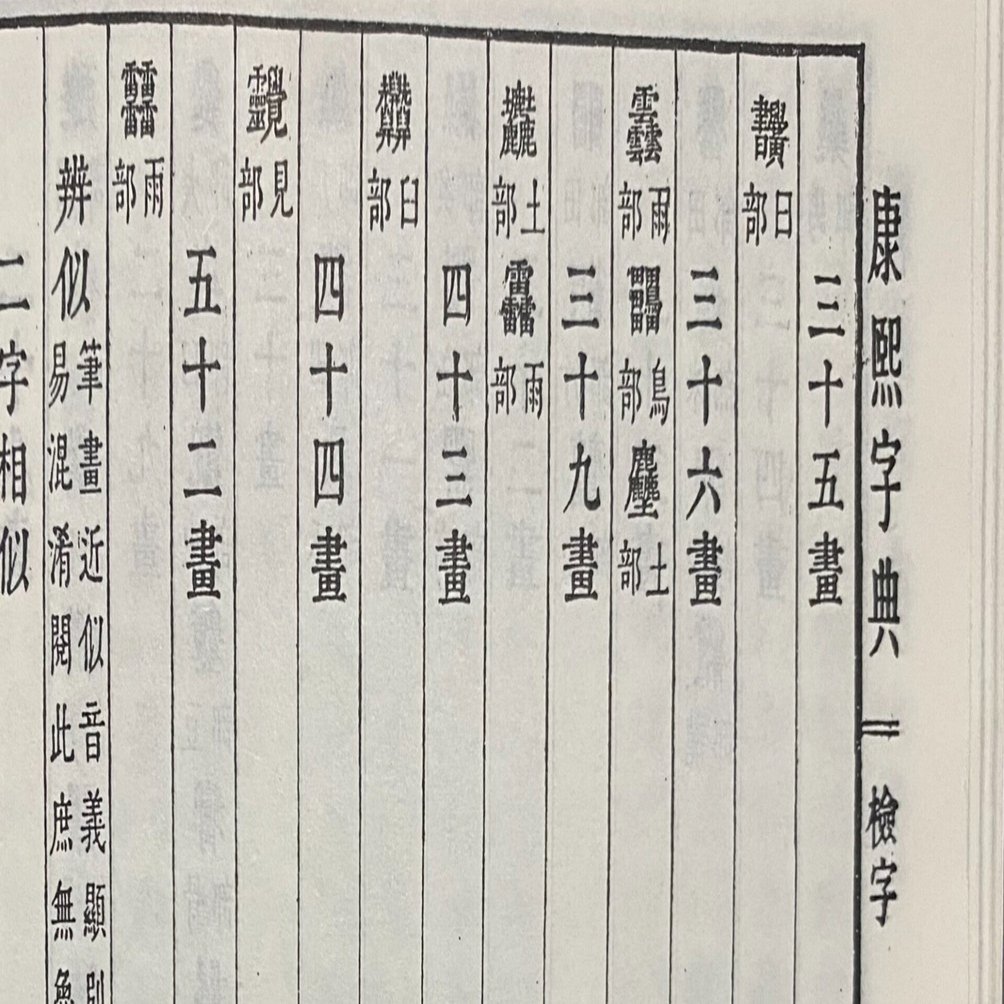 康熙字典 檢字
三十五畫
日部
三十六畫
𩇔 雨部 鳥部 土部
三十九畫
土部 靐 雨部
四十三畫
臼部
四十四畫
見部
五十二畫
䨻 雨部
辨似 筆畫近似音義顯別
易混淆閱此庶無魚
二字相似